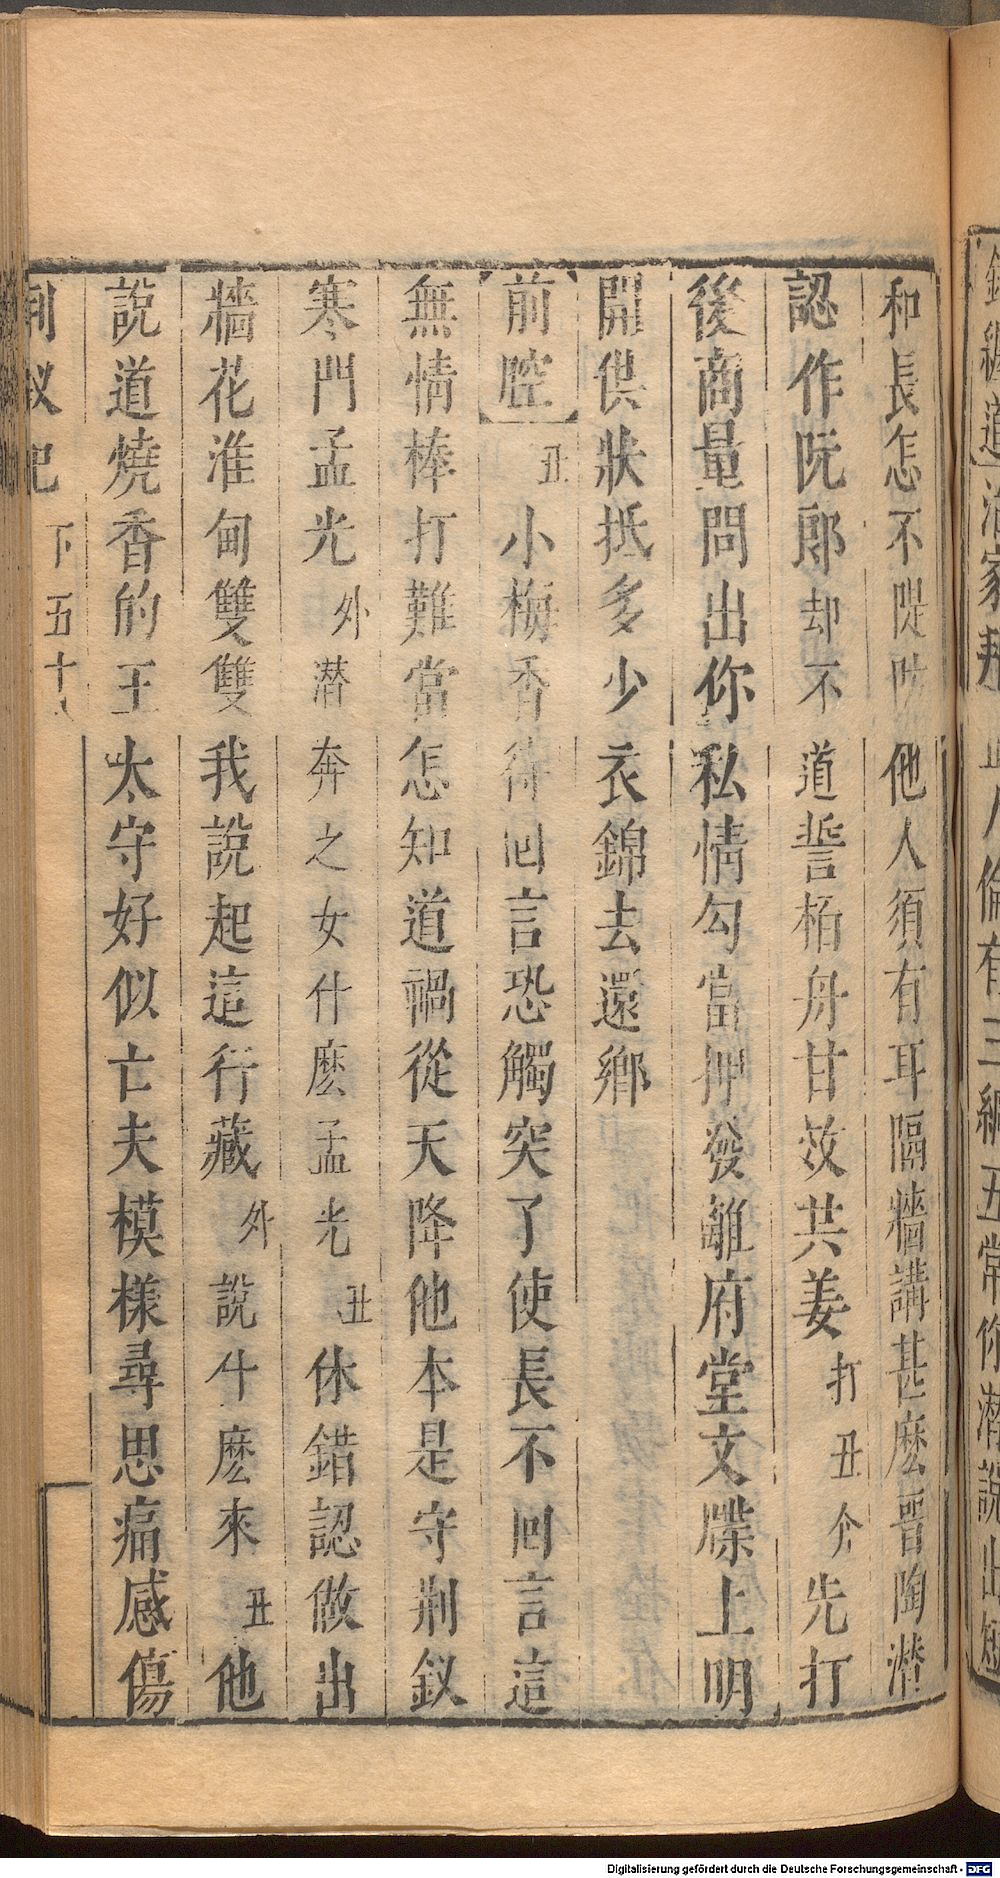 和長怎不隄防他人須有耳隔牆講甚麽晋陶潛
認作阮郎却不道誓栢舟甘效共姜打丑介先打
後商量問出你私情勾當押發離府堂文牒上明
開供狀抵多少衣錦去還鄉
前腔丑小梅香待回言恐觸突了使長不回言這
無情棒打難當怎知道禍從天降他本是守荆釵
寒門孟光外潛奔之女什麽孟光丑休錯認做出
牆花淮甸雙雙我說起這行藏外說什麽來丑他
說道燒香的王太守好似亡夫模樣尋思痛感傷
荆釵記 下五十
Digitalisierung gefördert durch die Deutsche Forschungsgemeinschaft - DFG